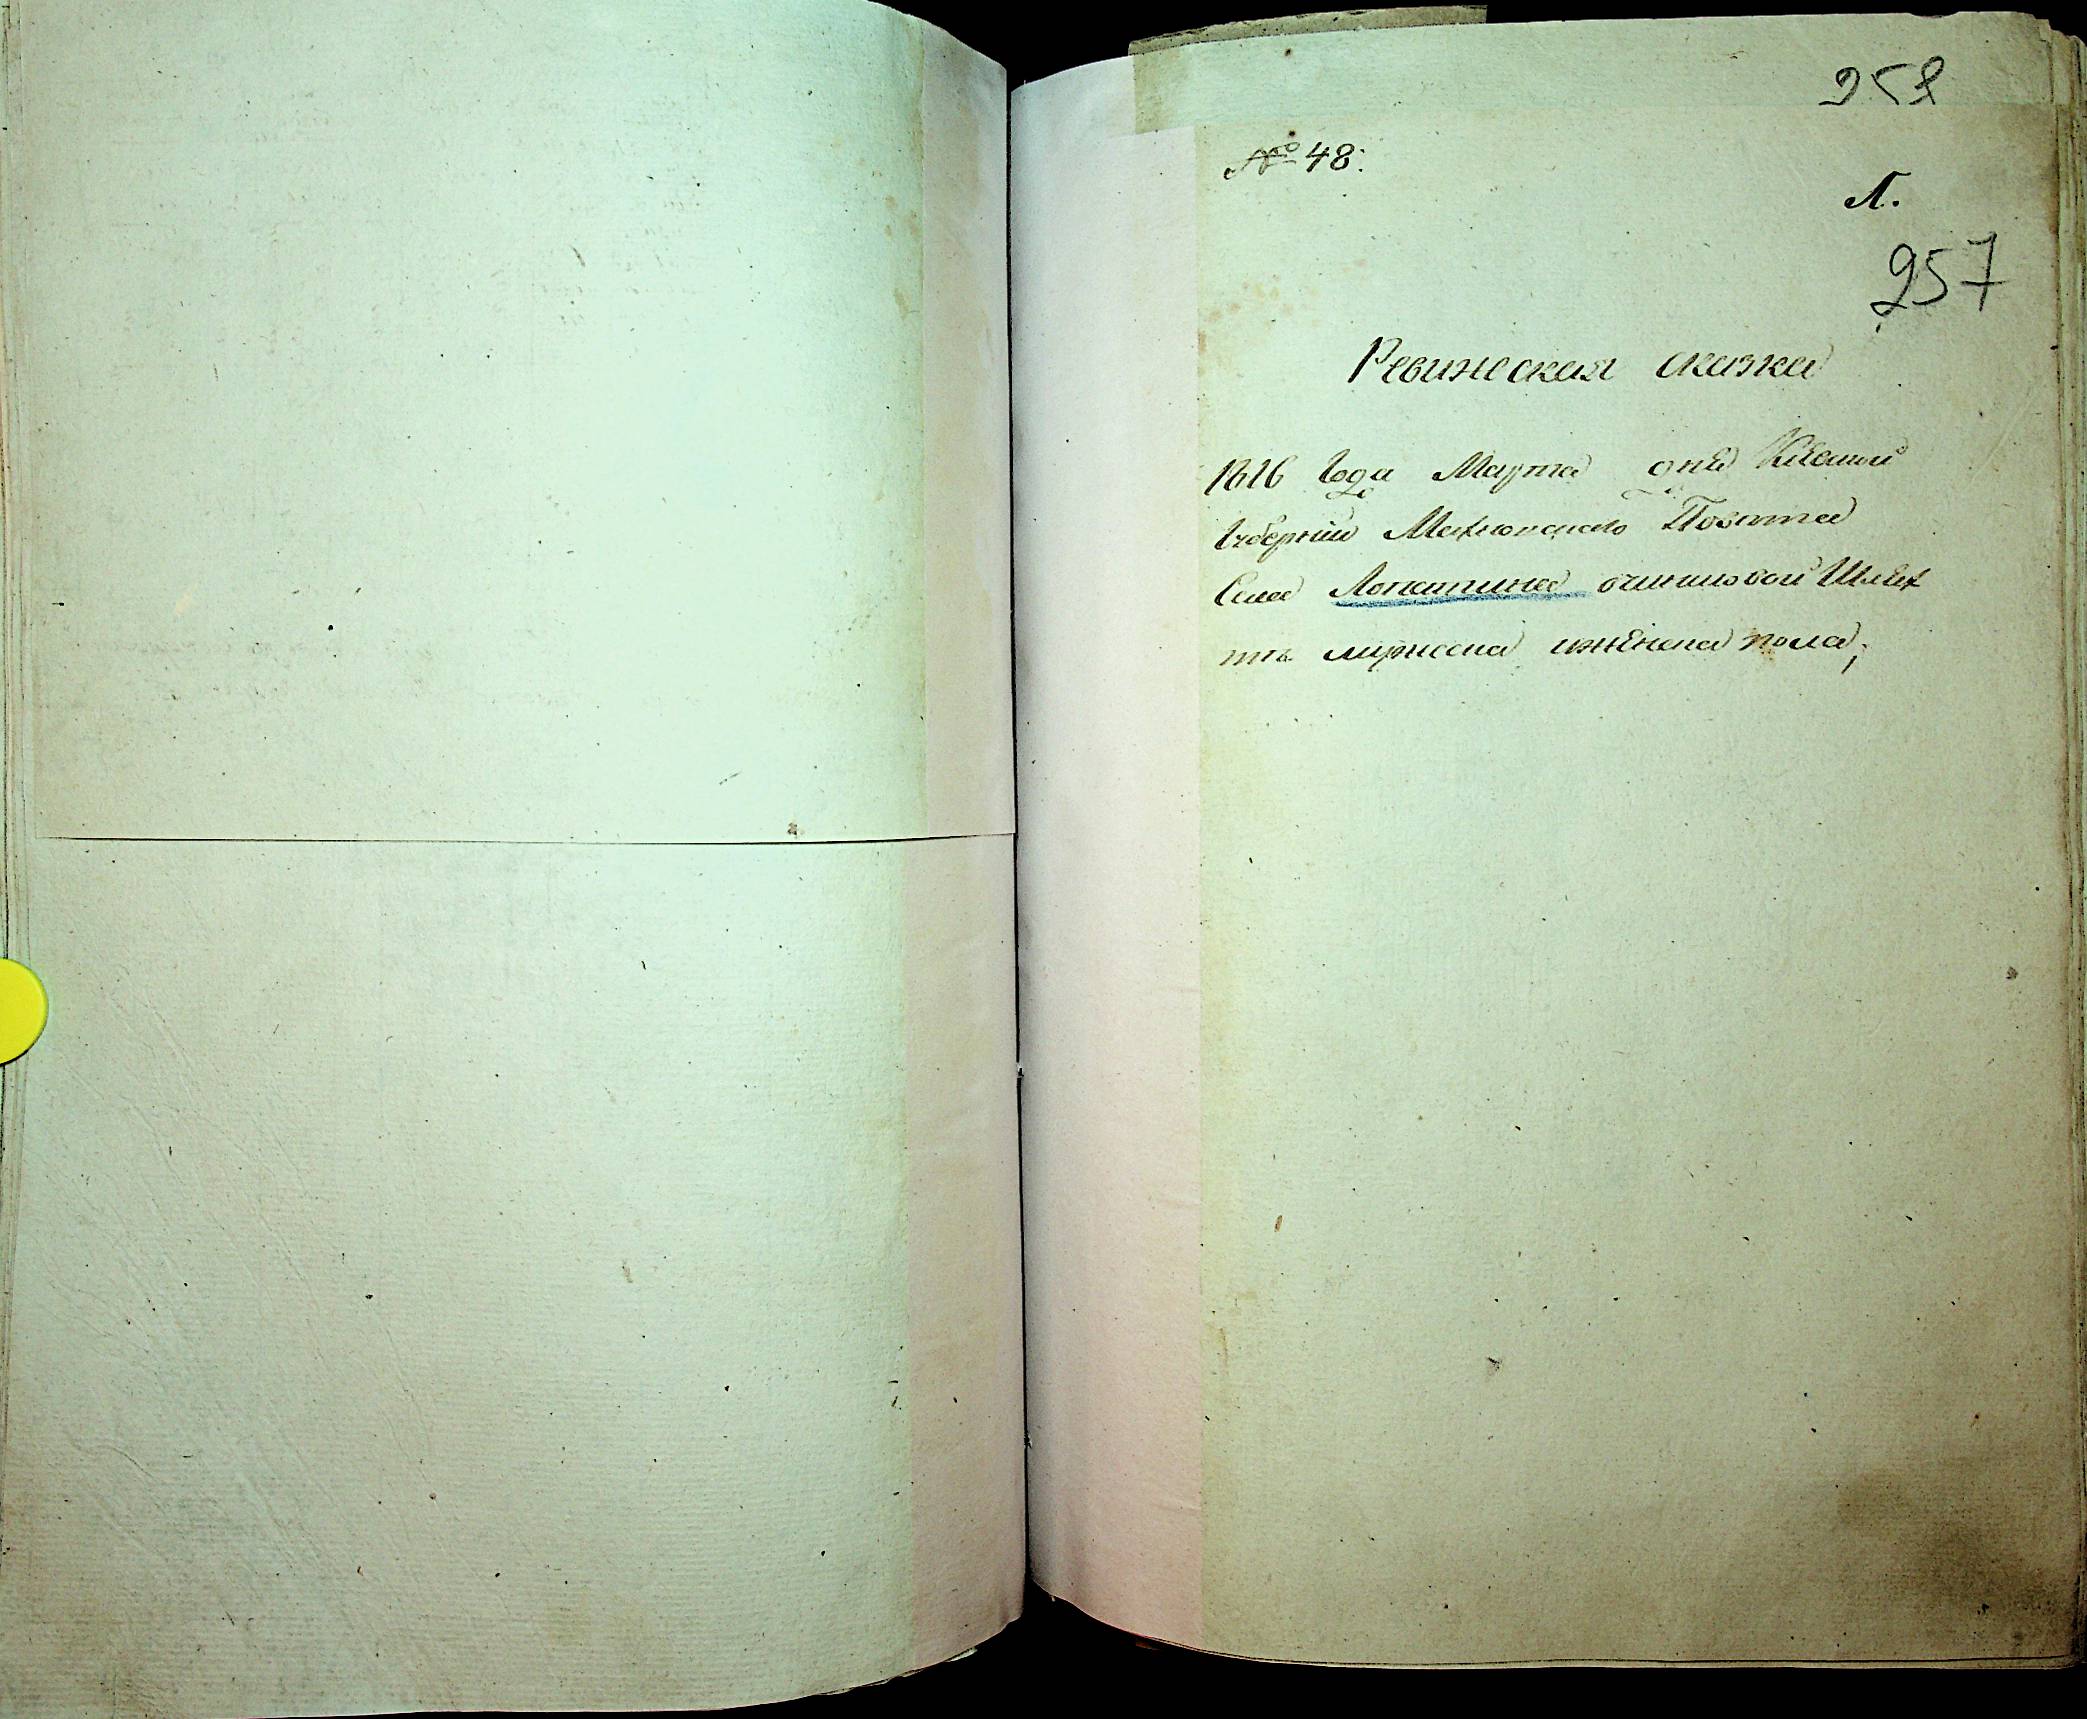 258
№ 48:
Л.
257
Ревижская сказка
1816 Года Марта дня Киевской
Губернии Махновского Повета
Села Лопатина очиншовой Шлях
ты мужеска и женска пола;